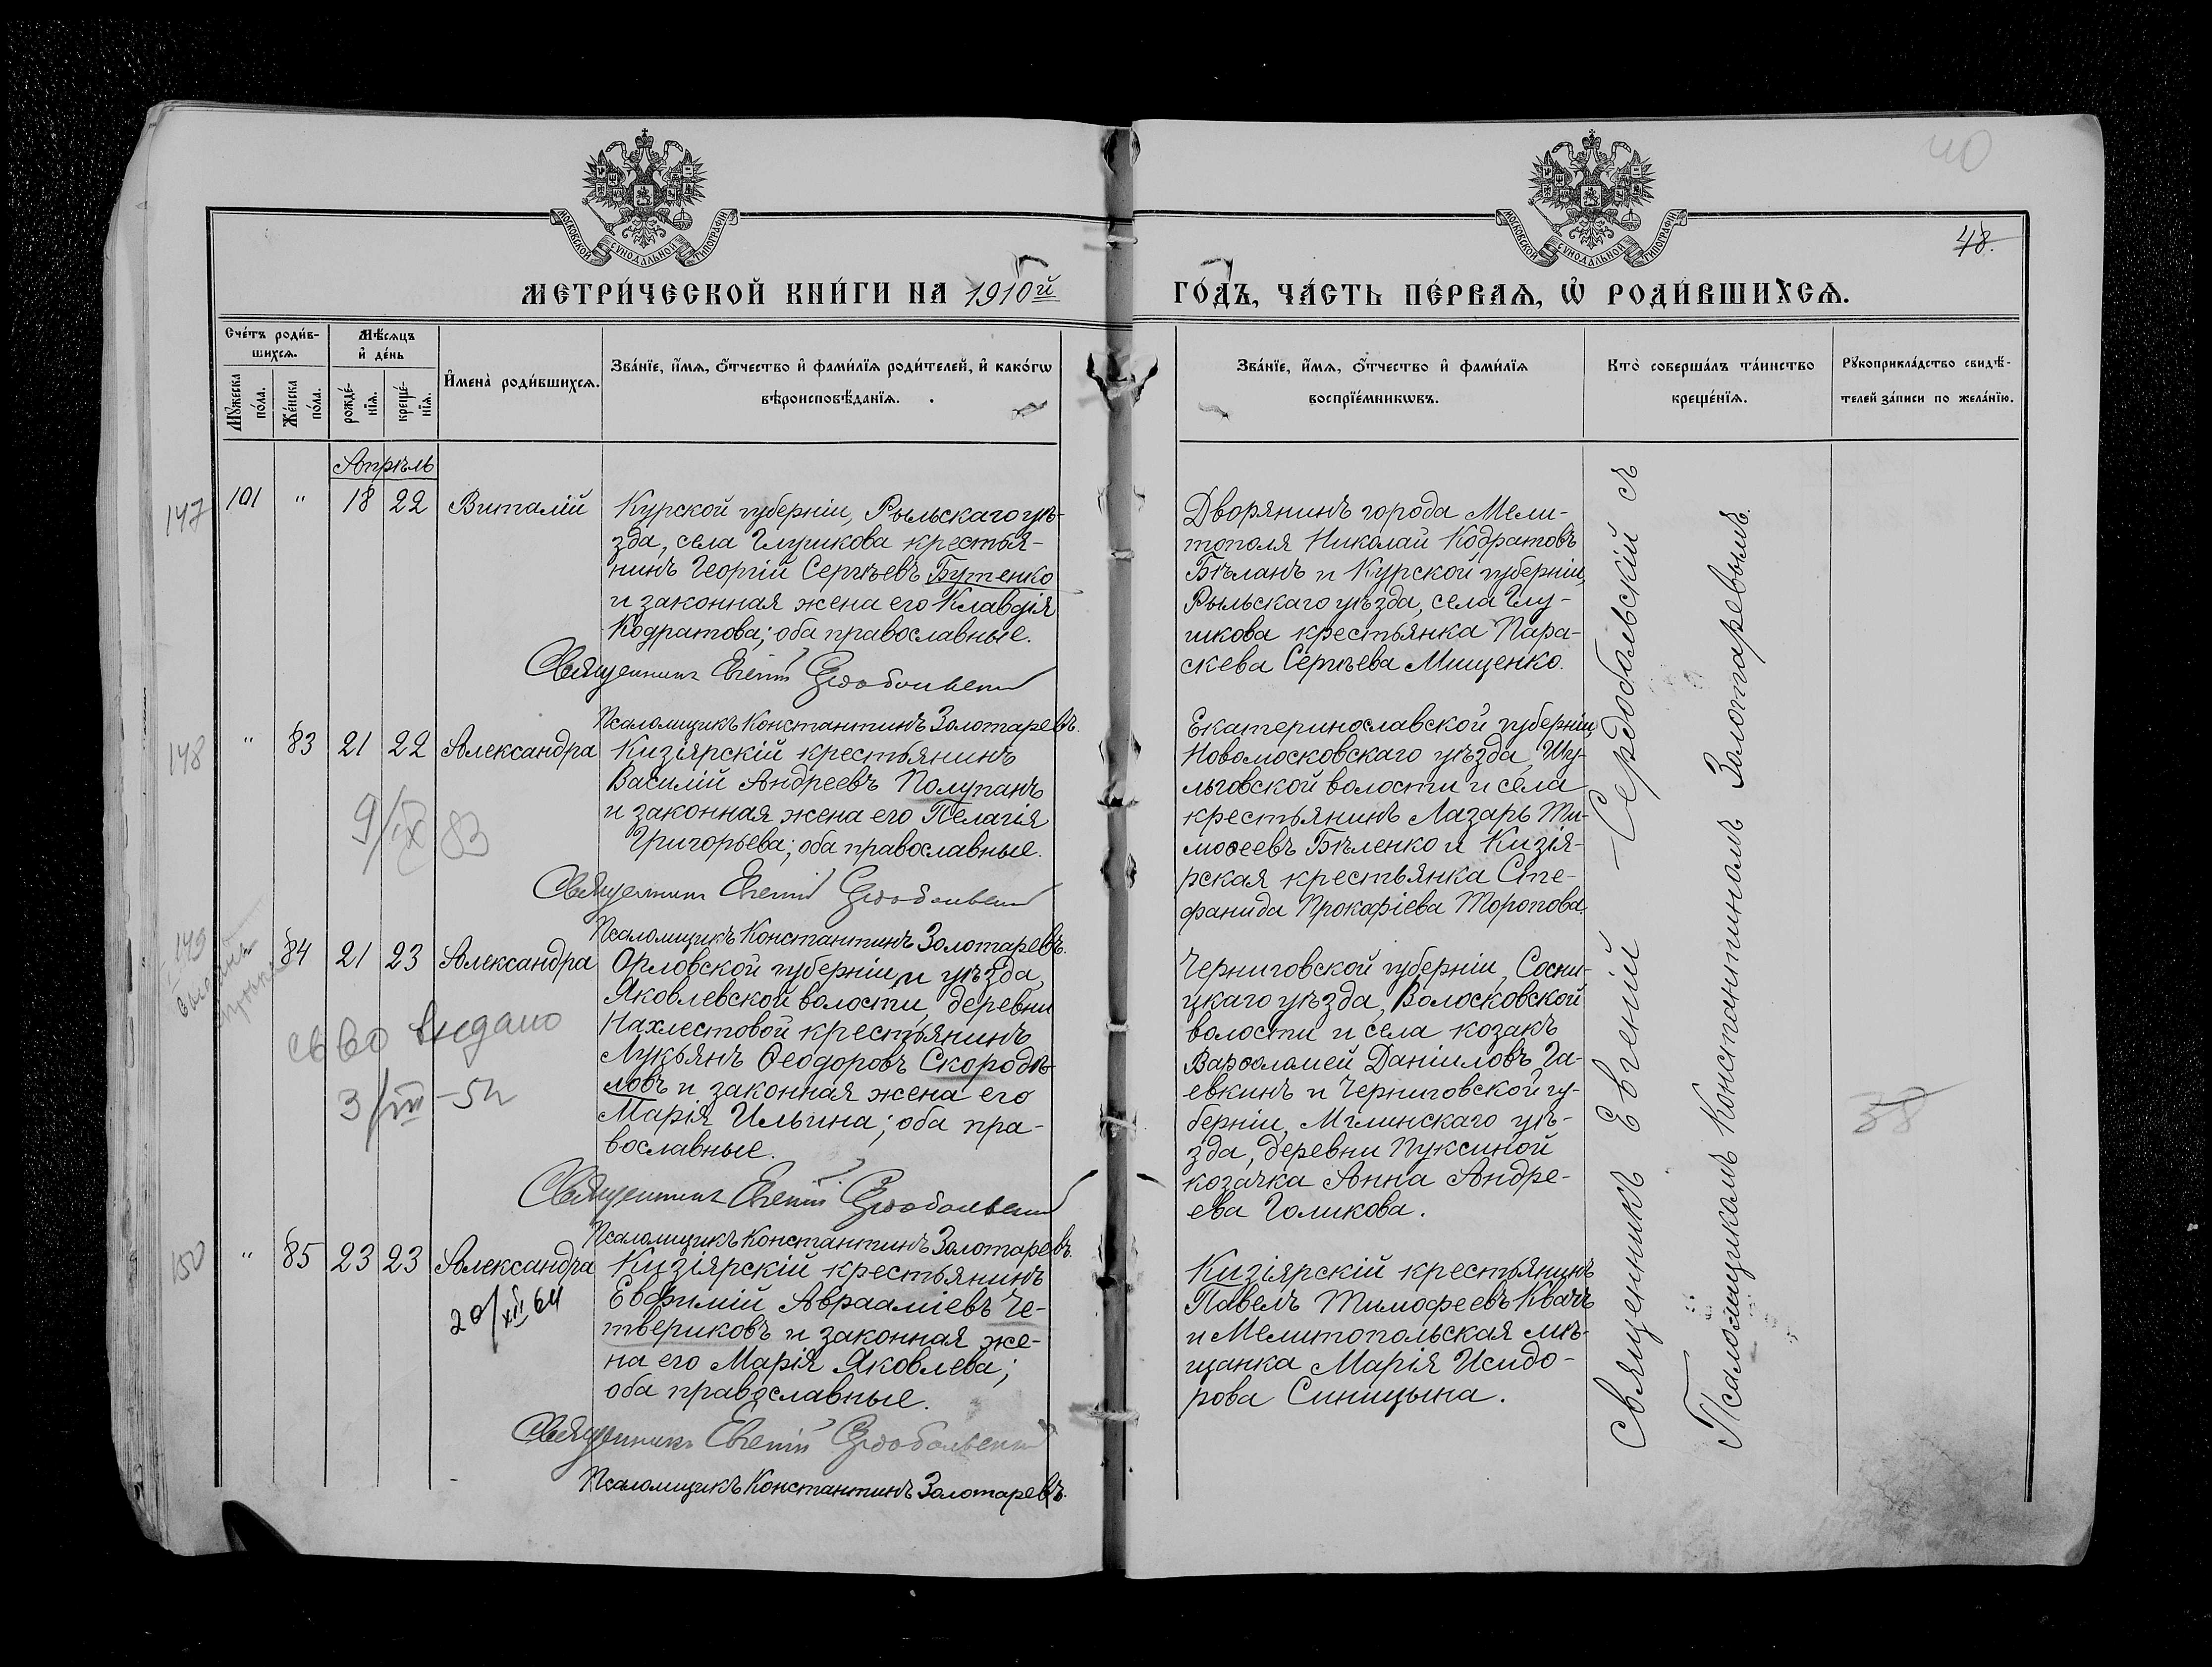 40
48.
МОСКОВСКОЙ СѴНОДАЛЬНОЙ ТИПОГРАФІИ
МОСКОВСКОЙ СѴНОДАЛЬНОЙ ТИПОГРАФІИ
МЕТРИ́ЧЕСКОЙ КНИ́ГИ НА 1910й
ГО́ДЪ, ЧА́СТЬ ПЕ́РВАѦ, Ѡ҆ РОДИ́ВШИХСѦ.
Сче́тъ роди́в-
шихсѧ.
Мѣ́сѧцъ
и҆ де́нь
Мꙋ́жеска
по́ла.
Же́нска
по́ла.
рожде́-
нїѧ.
креще́-
нїѧ.
И҆мена̀ роди́вшихсѧ.
Зва́нїе, и҆́мѧ, ѻ҆́тчество и҆ фами́лїѧ роди́телей, и҆ како́гѡ
вѣроисповѣ́данїѧ.
Зва́нїе, и҆́мѧ, ѻ҆́тчество и҆ фами́лїѧ
воспрїе́мникѡвъ.
Кто̀ соверша́лъ та́инство
креще́нїѧ.
Рꙋкоприкла́дство свидѣ́-
телей за́писи по жела́нїю.
Апрѣль
147
101 " 18 22 Виталій
Курской губерніи, Рыльскаго уѣ-
зда, села Глушкова крестья-
нинъ Георгій Сергѣевъ Бутенко
и законная жена его Клавдія
Кодратова; оба православные.
Священникъ Евгеній Сердобольскій
Псаломщикъ Константинъ Золотаревъ.
Дворянинъ города Мели-
тополя Николай Кодратовъ
Бѣланъ и Курской губерніи,
Рыльскаго уѣзда, села Глу-
шкова крестьянка Пара-
скева Сергѣева Мищенко.
148
" 83 21 22 Александра
Кизіярскій крестьянинъ
Василій Андреевъ Полупанъ
и законная жена его Пелагія
Григорьева; оба православные.
9/IX 83
Священникъ Евгеній Сердобольскій
Псаломщикъ Константинъ Золотаревъ.
Екатеринославской губерніи,
Новомосковскаго уѣзда, Шу-
льговской волости и села
крестьянинъ Лазарь Ти-
моѳеевъ Бѣленко и Кизія-
рская крестьянка Сте-
фанида Прокофіева Торопова.
149
84 21 23 Александра
Орловской губерніи, и уѣзда,
Яковлевской волости, деревни
Нахлестовой крестьянинъ
Лукьянъ Ѳеодоровъ Скородѣ-
ловъ и законная жена его
Марія Ильина; оба пра-
вославные.
св во видано
3/VIII-54
Священникъ Евгеній Сердобольскій
Псаломщикъ Константинъ Золотаревъ.
Черниговской губерніи, Сосни-
цкаго уѣзда, Волосковской
волости и села козакъ
Варѳоломей Даніиловъ Га-
евкинъ и Черниговской гу-
берніи, Мглинскаго уѣ-
зда, деревни Пуксиной
козачка Анна Андре-
ева Голикова.
38
150
" 85 23 23 Александра
Кизіярскій крестьянинъ
Евфимій Авраамiевъ Че-
твериковъ и законная же-
на его Марія Яковлева;
оба православные.
20/XII 64
Священникъ Евгеній Сердобольскій
Псаломщикъ Константинъ Золотаревъ.
Кизіярскій крестьянинъ
Павелъ Тимофеевъ Квачъ
и Мелитопольская мѣ-
щанка Марія Исидо-
рова Синицына.
Священникъ Евгеній Сердобольскій съ
Псаломщикомъ Константиномъ Золотаревымъ.